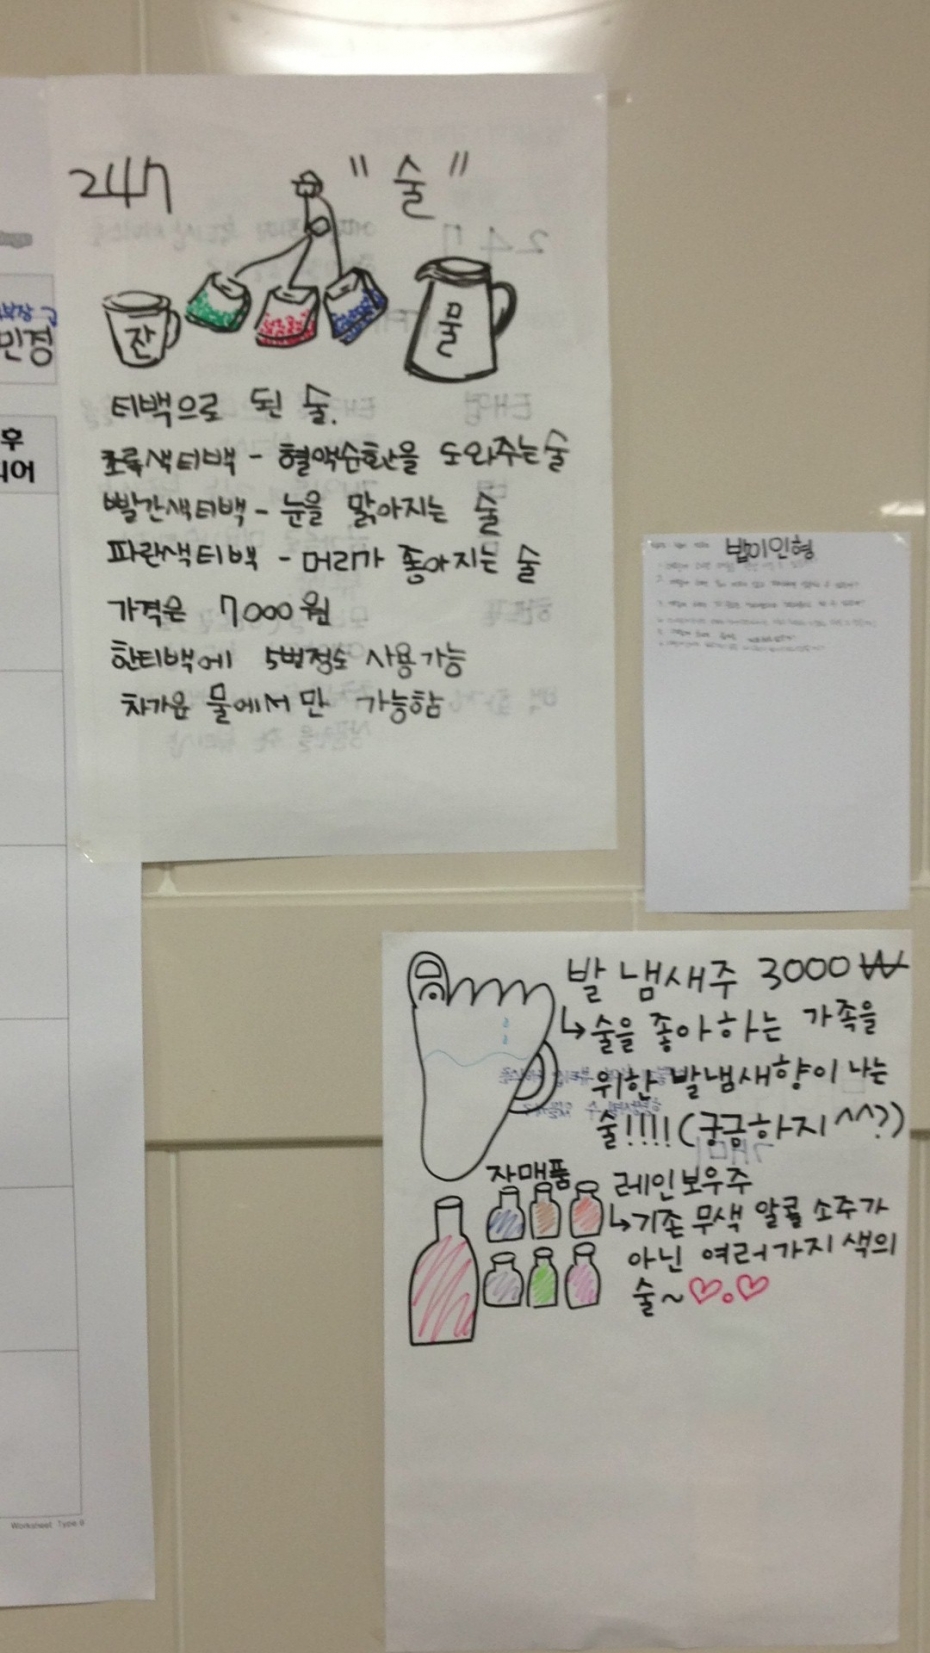 247 "술"
잔
물
티백으로 된 술.
초록색티백 - 혈액순환을 도와주는술
빨간색티백 - 눈을 맑아지는 술
파란색티백 - 머리가 좋아지는 술
가격은 7000원
한티백에 5번정도 사용가능
차가운 물에서만 가능함
민정
후
밥이인형
발 냄새주 3000₩
↳술을 좋아하는 가족을
위한 발냄새향이 나는
술!!!!(궁금하지^^?)
자매품
레인보우주
↳기존 무색 알콜 소주가
아닌 여러가지 색의
술~♡。♡
Worksheet Type B